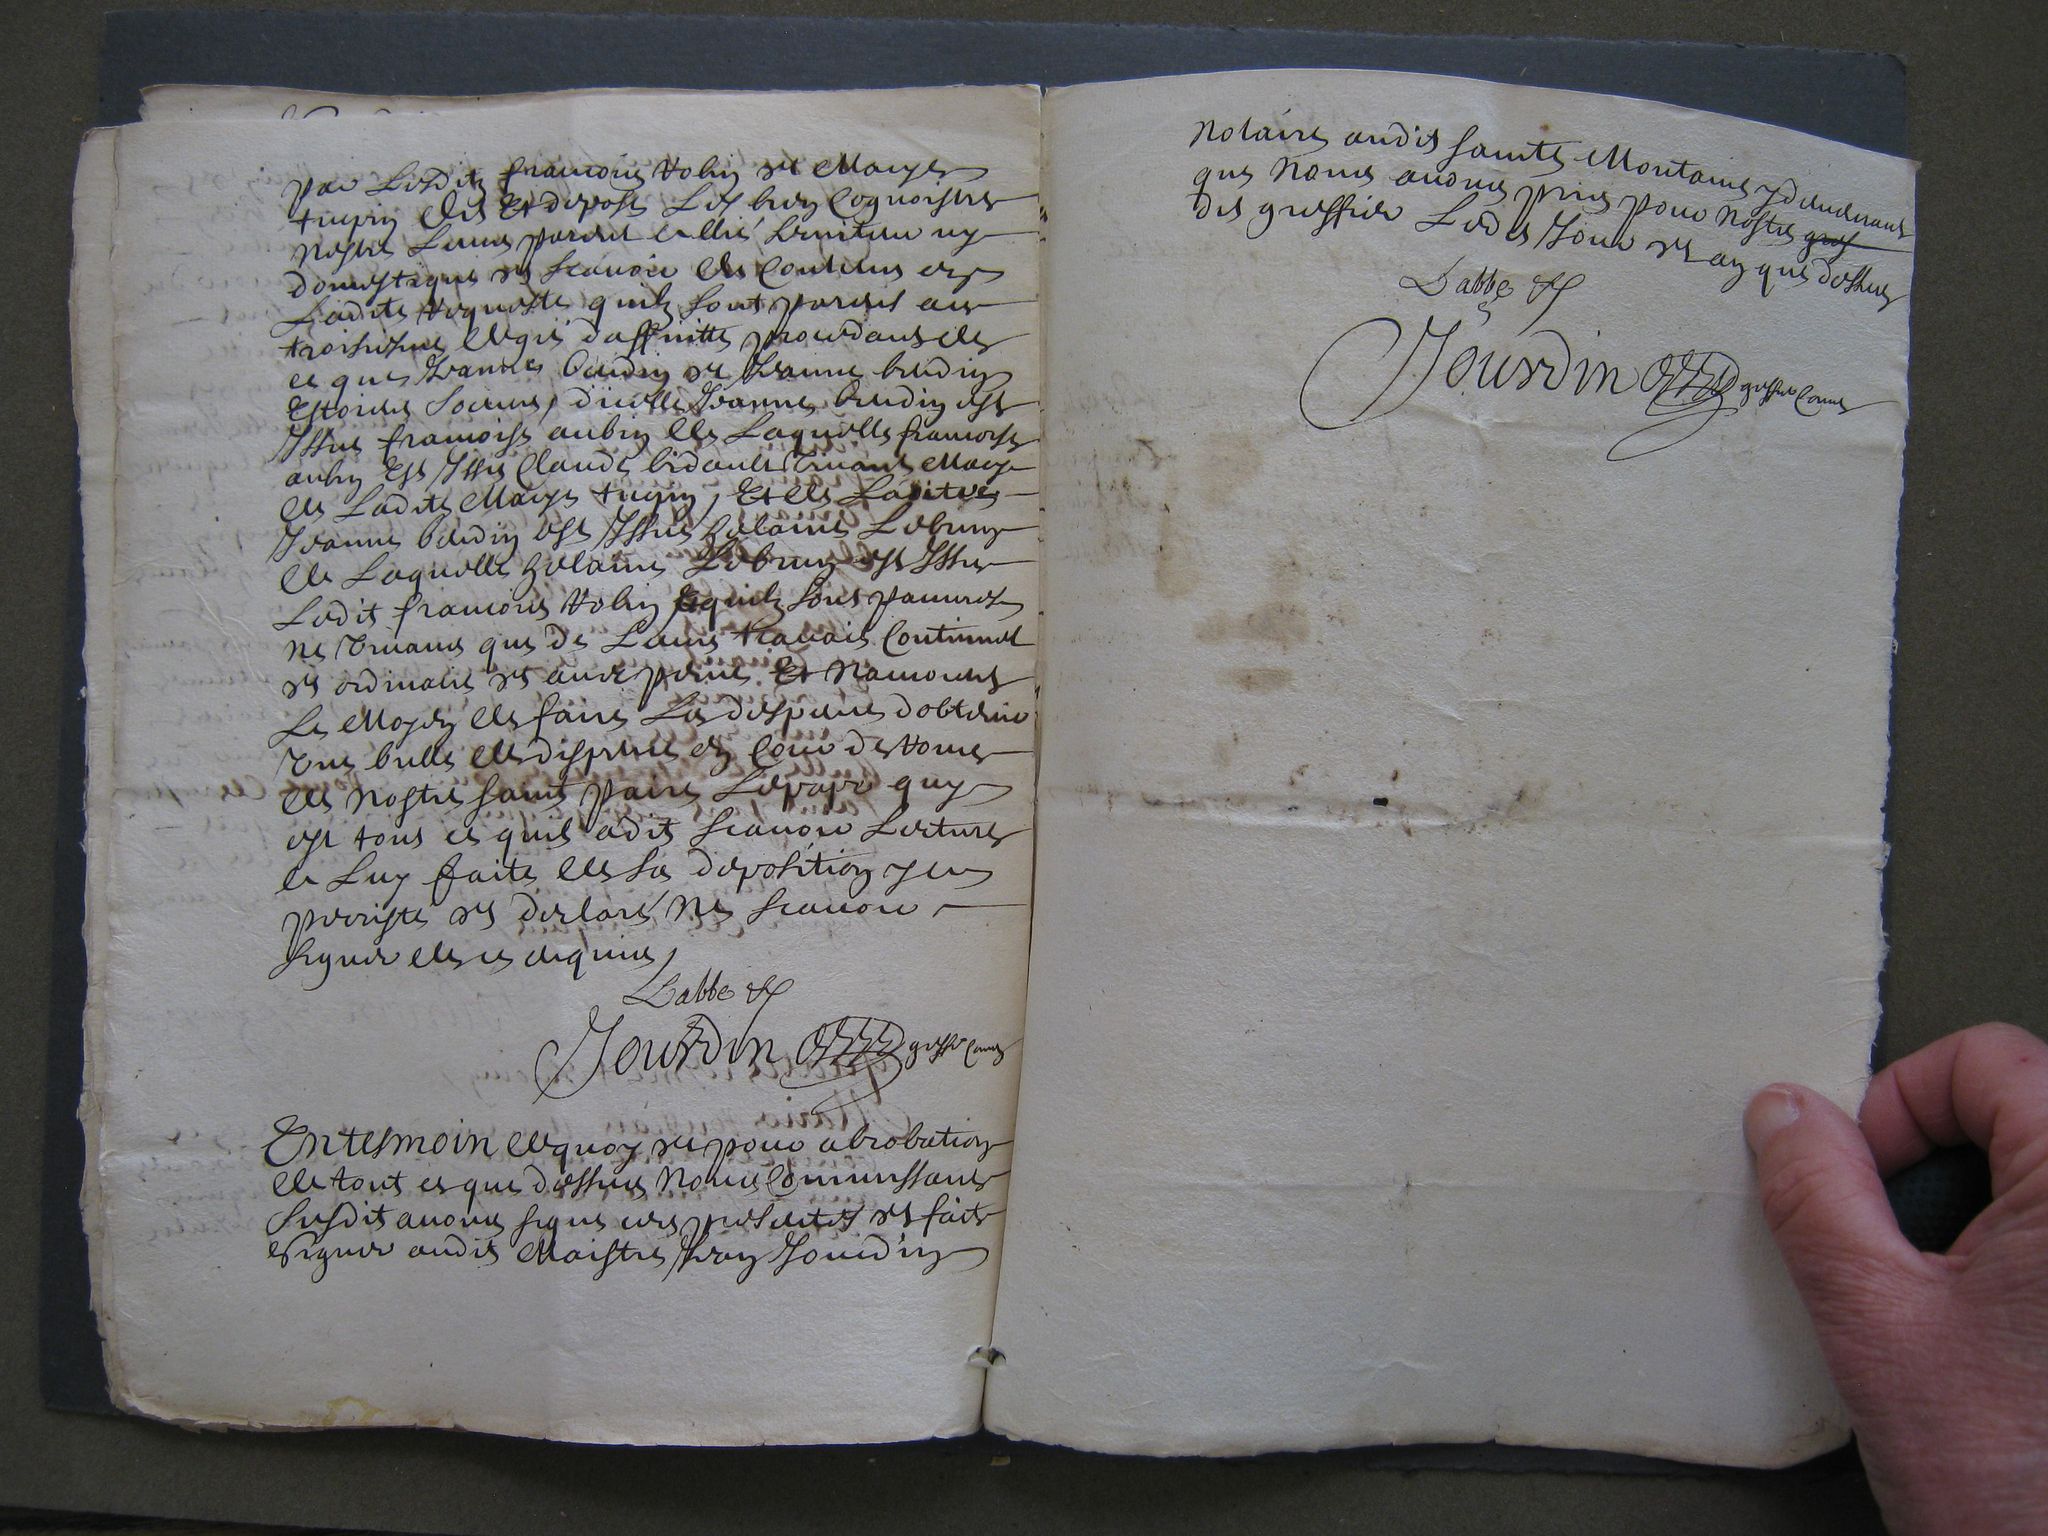 par Lesditz francois Robin et Marye
turpin dit Et depose Les bien Cognoistre
nestre Leurs parent allié serviteur ny
domestique et scavoir de Contenu en
Ladite Requeste quilz sont parens au
troisiesme degré daffinitté procedans de
ce que Jeanne baudin et Jeanne baudin
Estoient Soeurs, dicelle Jeanne baudin est
Issue francoise aubin de Laquelle francoise
aubin Est Issu Claude bidault vivant Mary
de Ladite Marye turpin, Et de Laditte
Jeanne baudin est Issue helaine Lebrun
de Laquelle helaine Lebrun est Issu
Ledit francois Robin Et quilz sont pauvres
ne vivans que de Leurs travail Continuel
et ordinaire et avec peine Et nanoient
Le Moyen de faire La despence dobtenir
Une bulle de dispence en Cour de Rome
de nostre saint paire Lepape quy
est tout ce quil a dit scavoir Lecture
a Luy faite de sa deposition y a
percisté et declaré ne scavoir
signer de ce enquis,
Labbe
Jourdin greffier Commis
En tesmoin de quoy et pour abrobation
de tout ce que dessus nous Commissaire
susdit avons signé ces presentes et fait
signer audit Maistre Jean Jourdin
notaire audit sainte Montaine y demeurant
que nous avons pris pour nostre gref
dit greffier Ledit Jour et an que dessus
Labbe
Jourdin greffier Commis